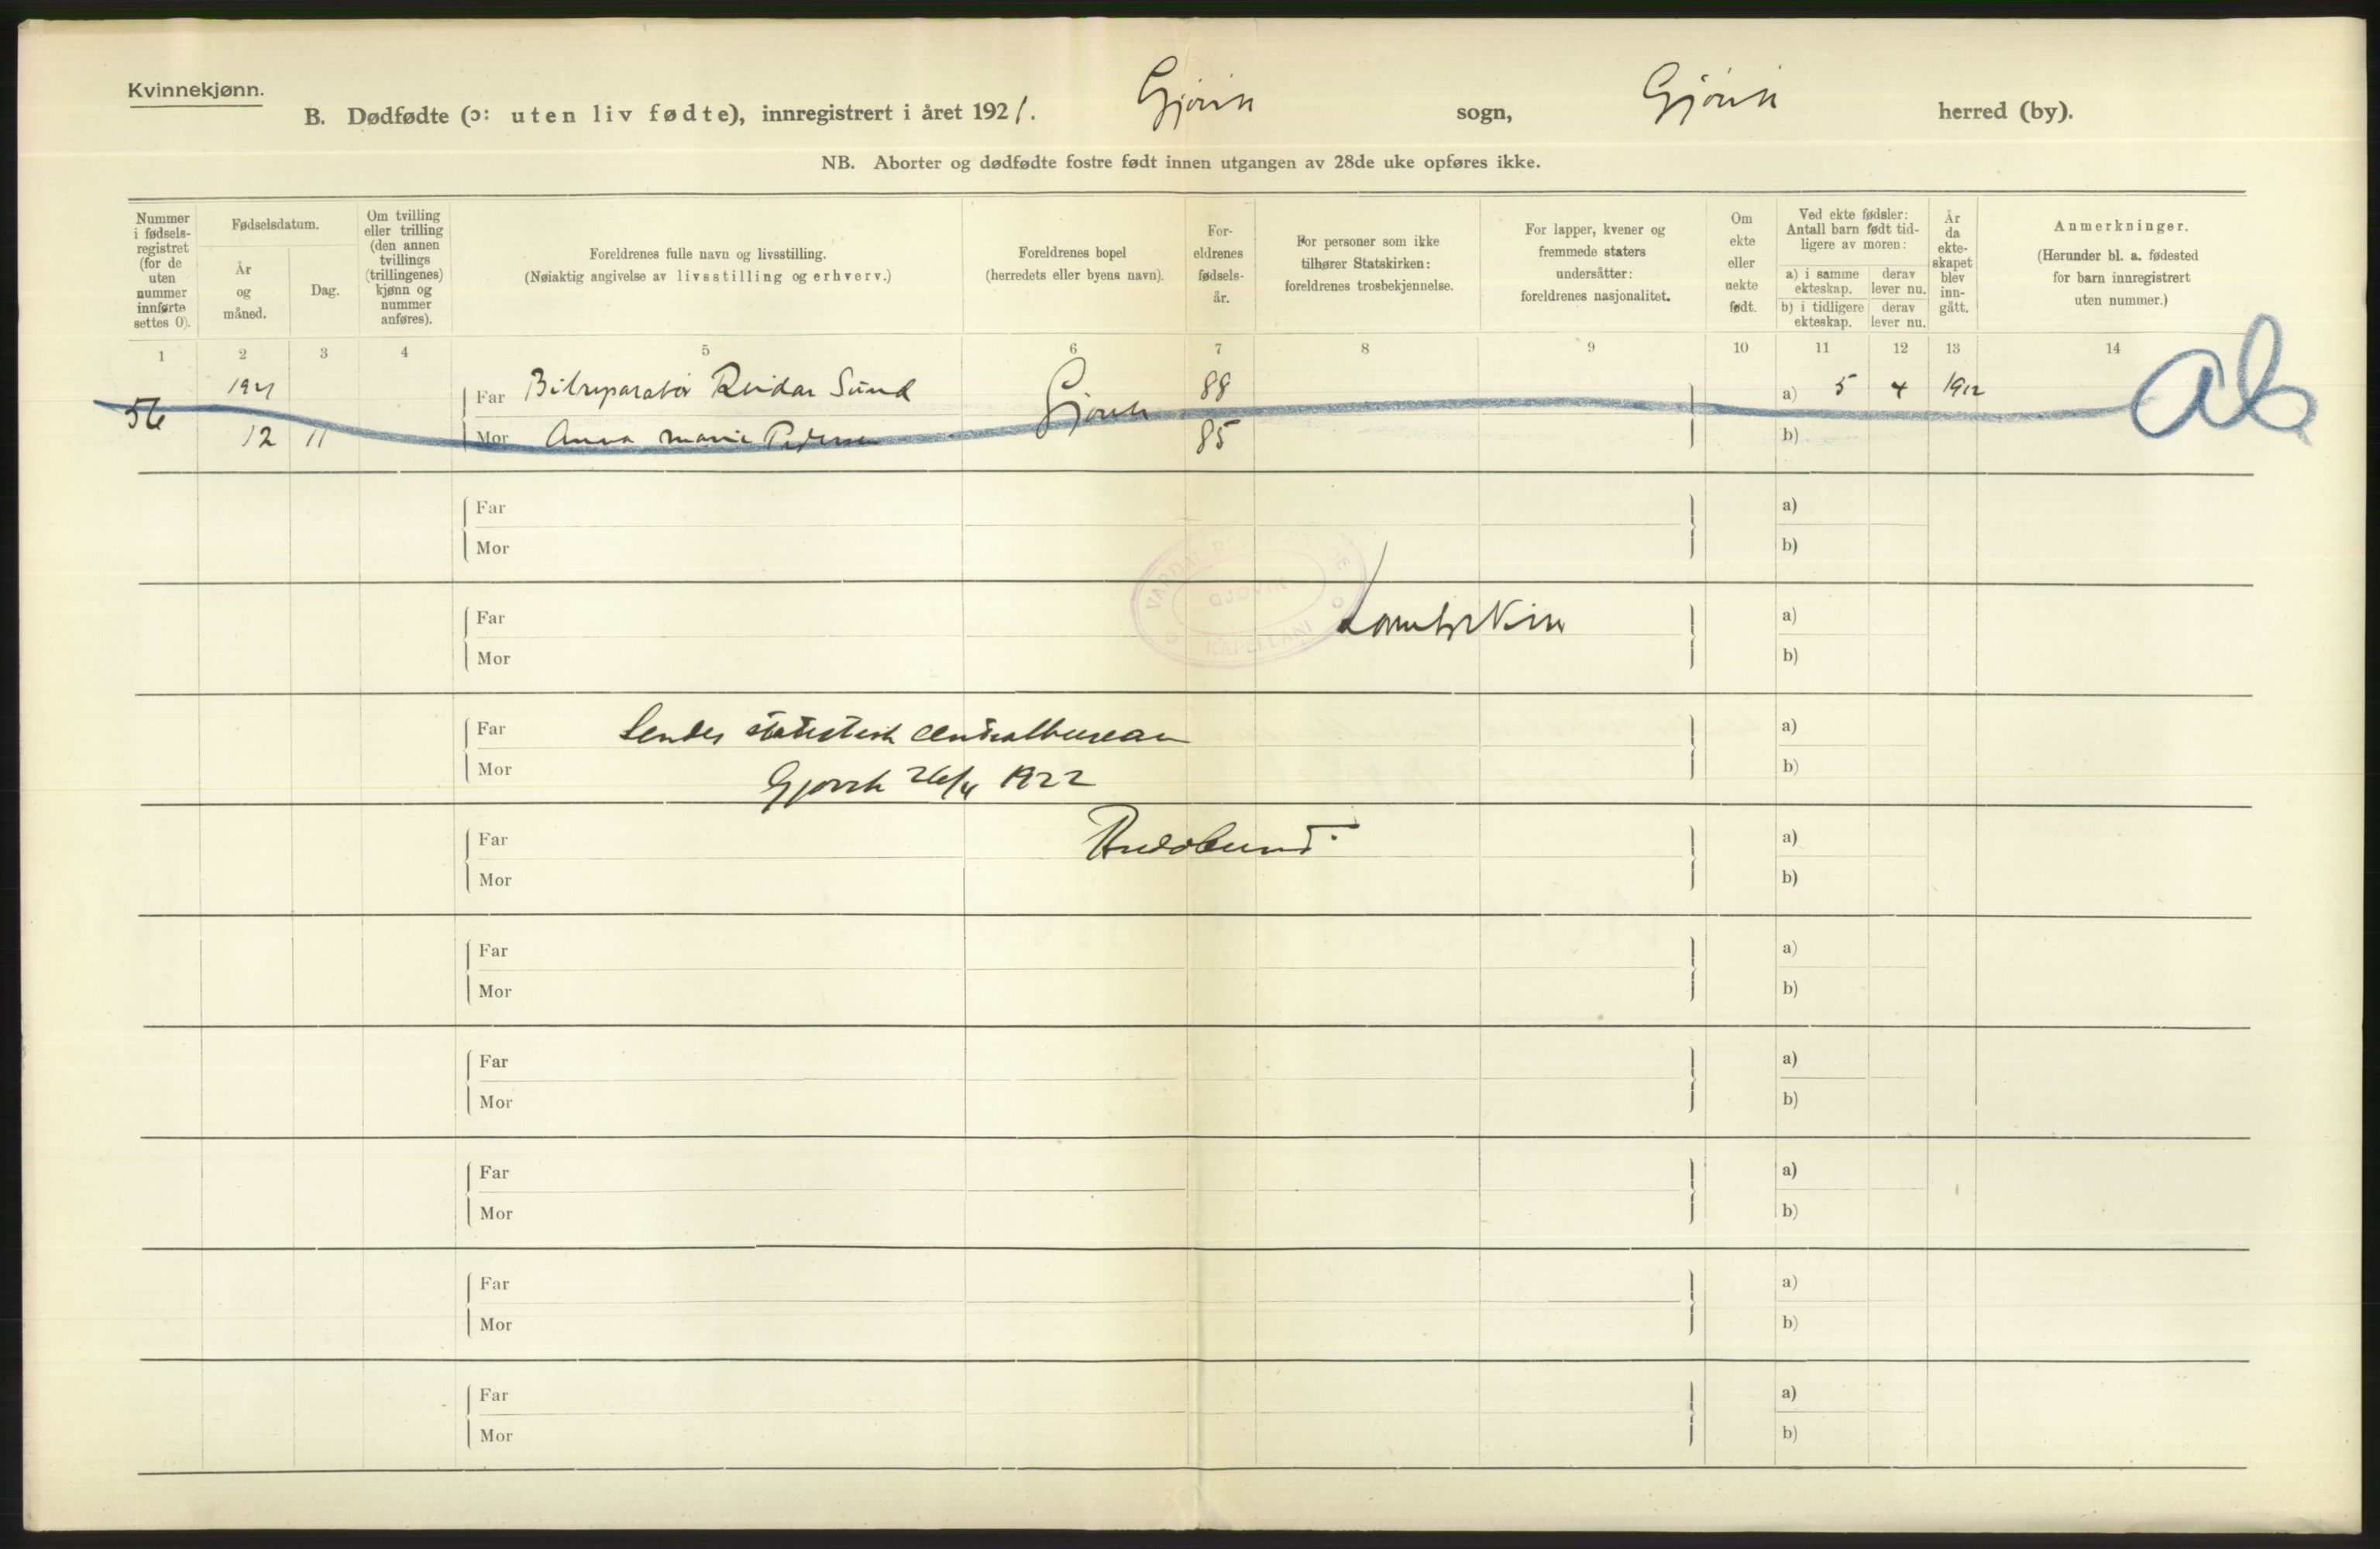 Kvinnekjønn.
B. Dødfødte (ɔ: uten liv fødte), innregistrert i året 1921. Gjøvik sogn, Gjøvik herred (by).
NB. Aborter og dødfødte fostre født innen utgangen av 28de uke opføres ikke.
Nummer i fødsels-registret (for de uten nummer innførte settes 0).
Fødselsdatum.
År og måned.
Dag.
Om tvilling eller trilling (den annen tvillings (trillingenes) kjønn og nummer anføres).
Foreldrenes fulle navn og livsstilling.
(Nøiaktig angivelse av livsstilling og erhverv.)
Foreldrenes bopel
(herredets eller byens navn).
For-eldrenes fødsels-år.
For personer som ikke tilhører Statskirken: foreldrenes trosbekjennelse.
For lapper, kvener og fremmede staters undersåtter: foreldrenes nasjonalitet.
Om ekte eller uekte født.
Ved ekte fødsler: Antall barn født tid-ligere av moren:
a) i samme ekteskap.
derav lever nu.
b) i tidligere ekteskap.
derav lever nu.
År da ekte-skapet blev inn-gått.
Anmerkninger.
(Herunder bl. a. fødested for barn innregistrert uten nummer.)
1 2 3 4 5 6 7 8 9 10 11 12 13 14
1921 Far Bilreparatør Reidar Sund Gjøvik 88 a) 5 4 1912
56 12 11 Mor Anna Marie Pedersen 85 b)
Ab
Far a)
Mor b)
VARDAL RESIDERENDE
GJØVIK
KAPELLANI
Far a)
Mor b)
Far Sendes statistisk centralbureau a)
Mor Gjøvik 26/4 1922 b)
Far a)
Mor b)
Far a)
Mor b)
Far a)
Mor b)
Far a)
Mor b)
Far a)
Mor b)
Far a)
Mor b)